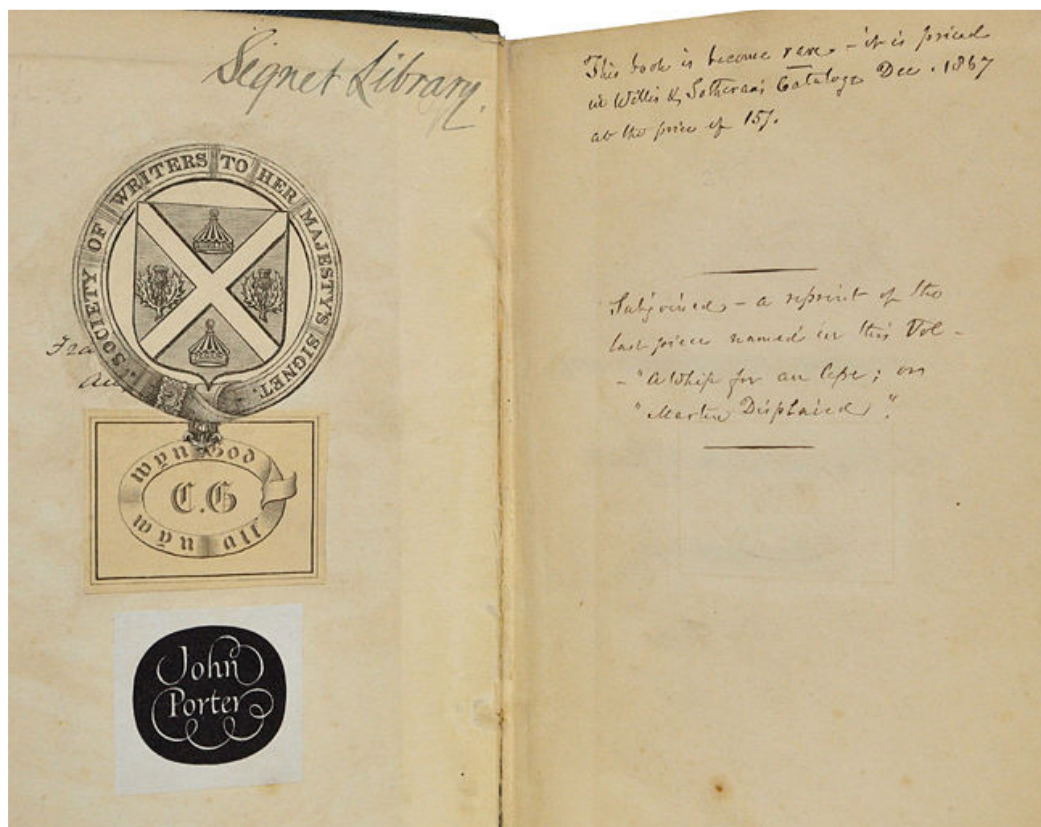 Signet Library.
SOCIETY OF WRITERS TO HER MAJESTY'S SIGNET.
Fra
wyn God
C.G
wyn all
John
Porter
This book is become rare – it is priced
in Willis & Sotheran's Cataloge Dec. 1867
at the price of 15/.
Subjoined – a reprint of the
last piece named in this Vol –
– "A Whip for an Ape; or
"Martin Displaied".